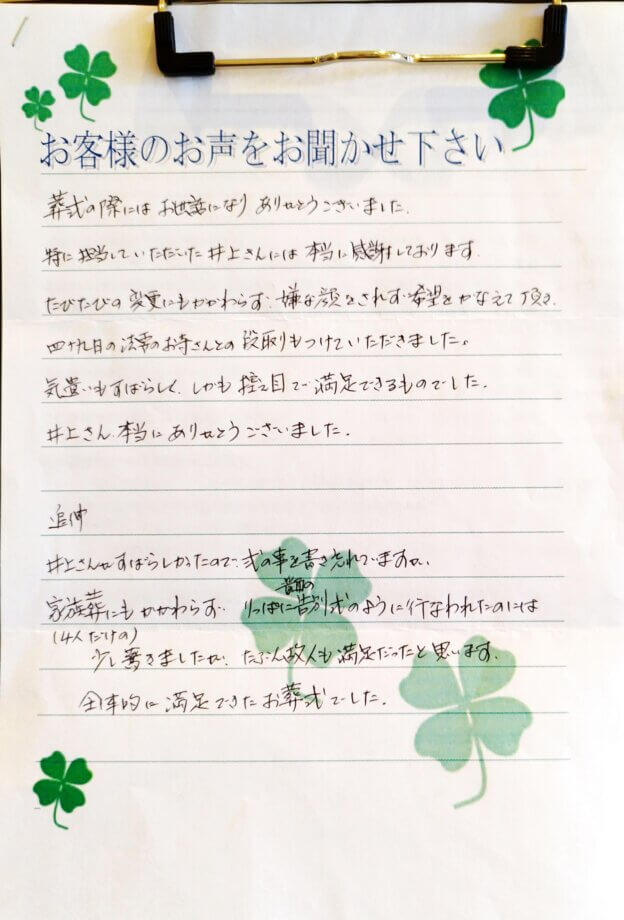 お客様のお声をお聞かせ下さい
葬式の際にはお世話になりありがとうございました.
特に担当していただいた井上さんには本当に感謝しております.
たびたびの変更にもかかわらず、嫌な顔をされず希望をかなえて頂き.
四十九日の法要のお寺さんとの段取りもつけていただきました。
気遣いもすばらしく、しかも控え目で満足できるものでした.
井上さん、本当にありがとうございました.
追伸
井上さんがすばらしかったので、式の事を書き忘れていますが、
家族葬にもかかわらず、りっぱに告別式のように行なわれたのには
(4人だけの)
少し驚きましたが、たぶん故人も満足だったと思います.
全体的に満足できたお葬式でした.